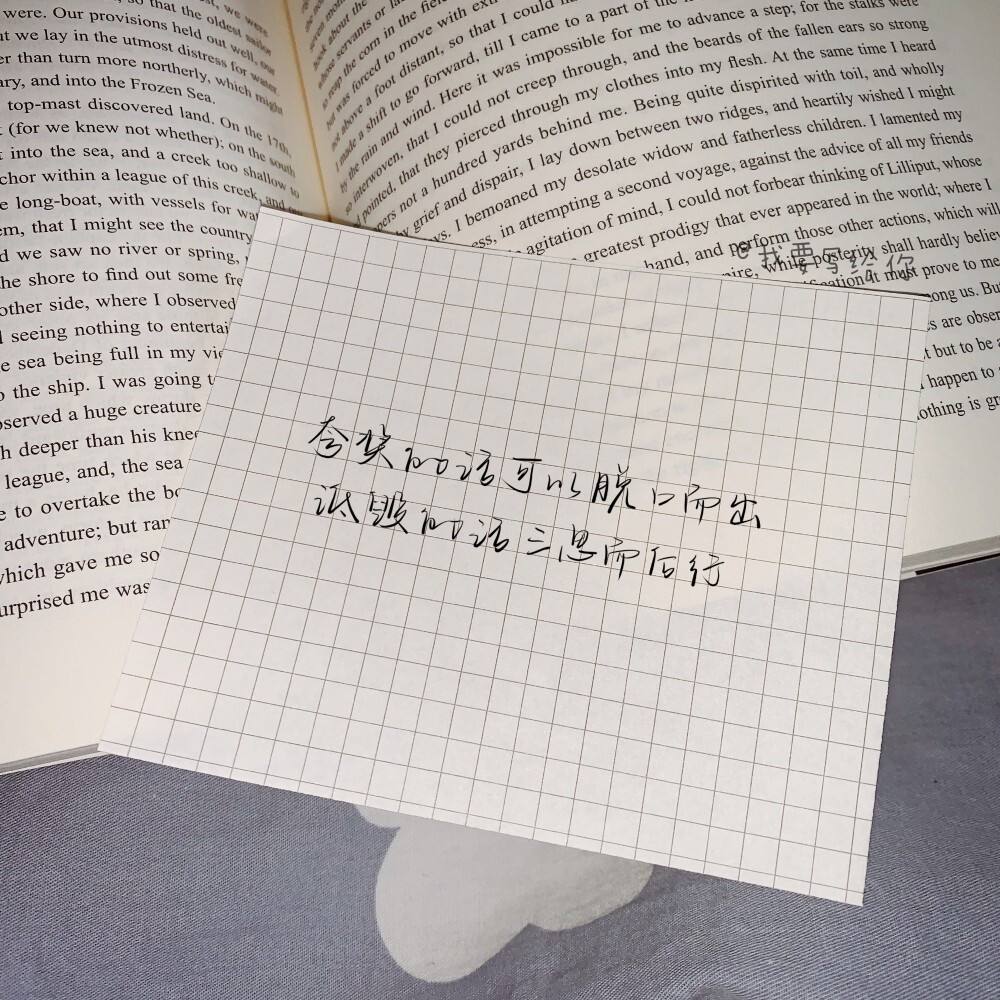 were. Our provisions held out well, our
t we lay in the utmost distress for water.
er than turn more northerly, which might
ary, and into the Frozen Sea.
top-mast discovered land. On the 17th,
(for we knew not whether); on the south
into the sea, and a creek too shallow to
chor within a league of this creek, and
e long-boat, with vessels for
em, that I might see the country
d we saw no river or spring,
he shore to find out some
other side, where I observed
seeing nothing to
e sea being full in my
the ship. I was going
served a huge creature
h deeper than his
league, and, the sea
e to overtake the
adventure; but ran
which gave me so
urprised me was
was forced to move with
not above a foot distant, so that I could
made a shift to go forward, till I came to a part of the
by the rain and wind. Here it was impossible for me to advance a step; for the stalks were
so interwoven, that I could not creep through, and the beards of the fallen ears so strong
pointed, that they pierced through my clothes into my flesh. At the same time I heard
pers not a hundred yards behind me. Being quite dispirited with toil, and wholly
by grief and dispair, I lay down between two ridges, and heartily wished I might
ys. I bemoaned my desolate widow and fatherless children. I lamented my
ess, in attempting a second voyage, against the advice of all my friends
agitation of mind, I could not forbear thinking of Lilliput, whose
greatest prodigy that ever appeared in the world; where I
hand, and perform those other actions, which will
while posterity shall hardly
must prove to me
ong us. But
are obser
but to be a
happen to
othing is
@我要写给你
夸奖的话可以脱口而出
诋毁的话三思而后行